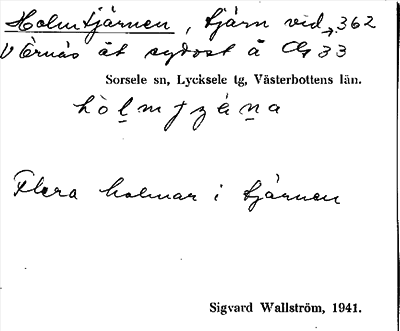 Holmtjärnen, tjärn vid 362
V Örnäs åt sydost å Cg 33
Sorsele sn, Lycksele tg, Västerbottens län.
Flera holmar i tjärnen
Sigvard Wallström, 1941.